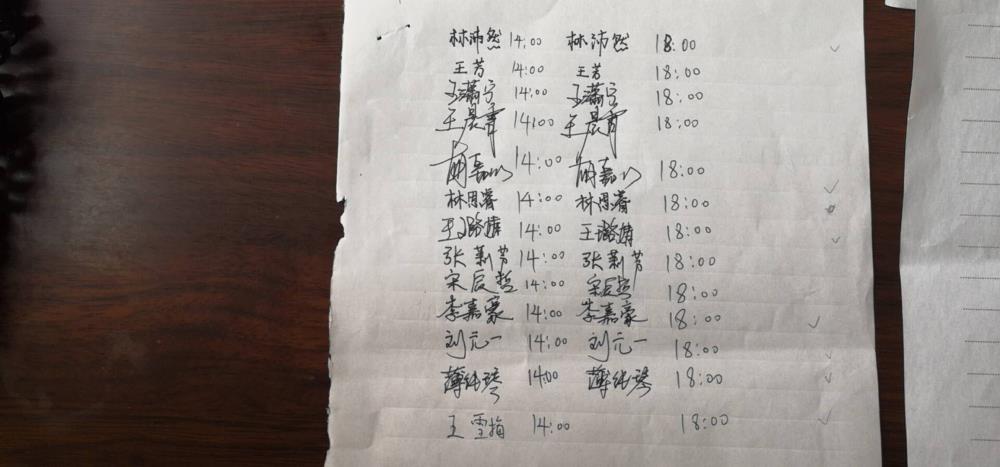 林沛然 14:00 林沛然 18:00
王芳 14:00 王芳 18:00
王潇宁 14:00 王潇宁 18:00
王晨霄 14:00 王晨霄 18:00
胡嘉以 14:00 胡嘉以 18:00
林思睿 14:00 林思睿 18:00
王璐婧 14:00 王璐婧 18:00
张莉芳 14:00 张莉芳 18:00
宋辰哲 14:00 宋辰哲 18:00
李嘉豪 14:00 李嘉豪 18:00
刘元一 14:00 刘元一 18:00
薄纯琴 14:00 薄纯琴 18:00
王雪梅 14:00 18:00